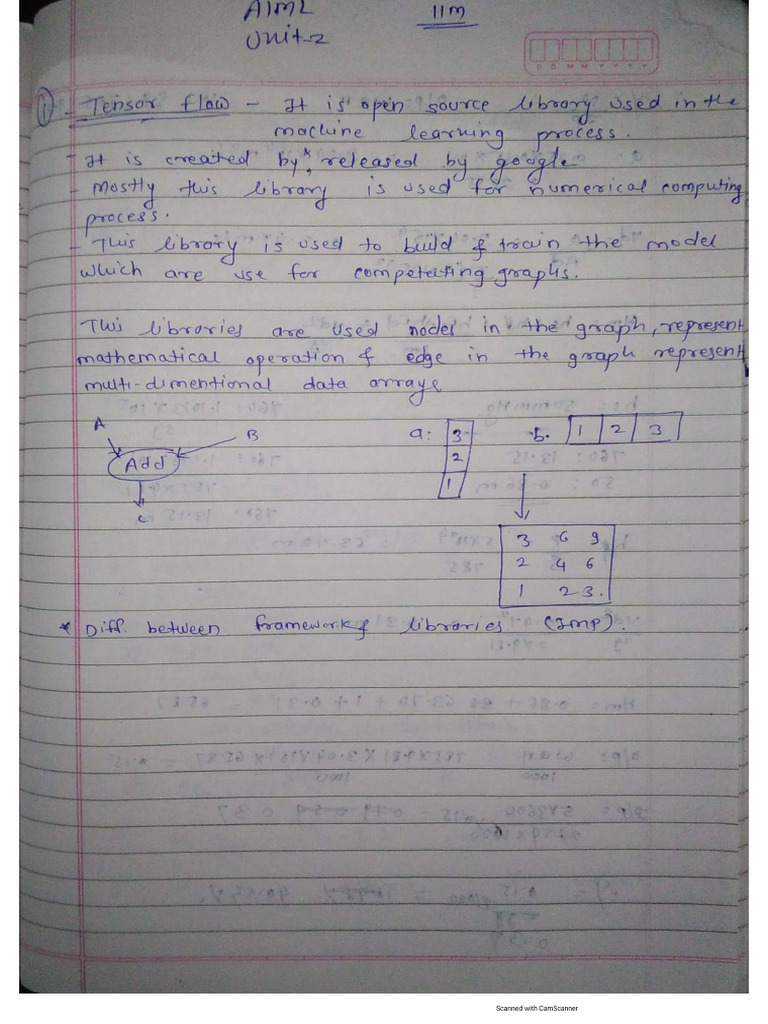 AIML 11M
Unit-2
D D M M Y Y Y Y
① - Tensor flow - It is open source library used in the
machine learning process.
- It is created by*, released by google.
- Mostly this library is used for numerical computing
process.
- This library is used to build & train the model
which are use for competating graphs.
This libraries are used nodes in the graph, represent
mathematical operation & edge in the graph represent
multi-dimentional data arrays
A B
Add
C
a: 3 b. 1 2 3
2
1
3 6 9
2 4 6
1 2 3.
* Diff. between framework & libraries (Imp).
Scanned with CamScanner